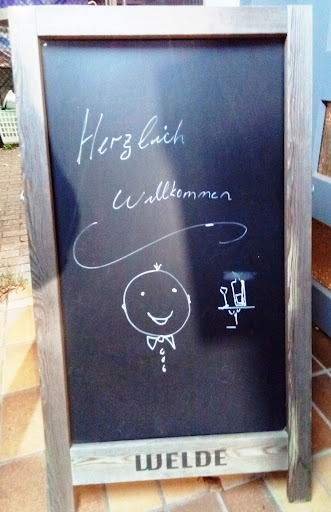 Herzlich
Willkommen
WELDE